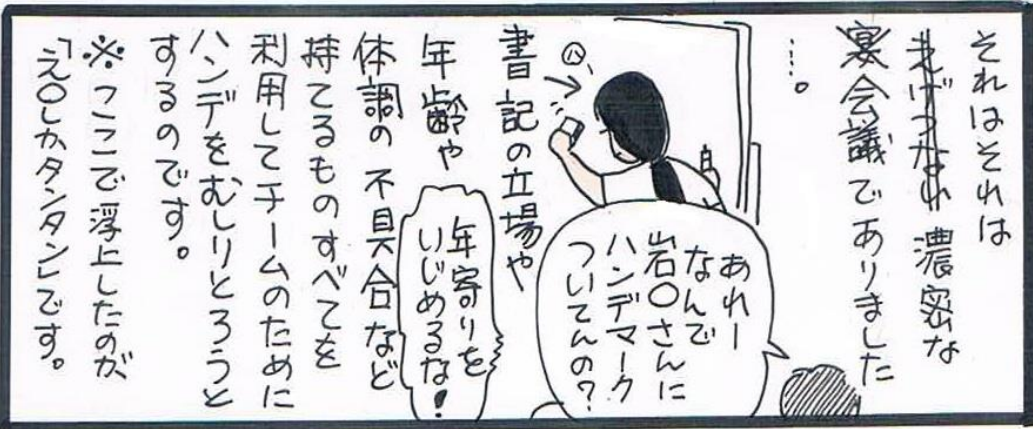 それはそれは
えげつない濃密な
宴会議でありました
……。
あれー
なんで
岩〇さんに
ハンデマーク
ついてんの？
㋩
書記の立場や
年齢や
体調の不具合など
持てるものすべてを
利用してチームのために
ハンデをむしりとろうと
するのです。
年寄りを
いじめるな！
※ここで浮上したのが
「え〇しかタンタン」です。